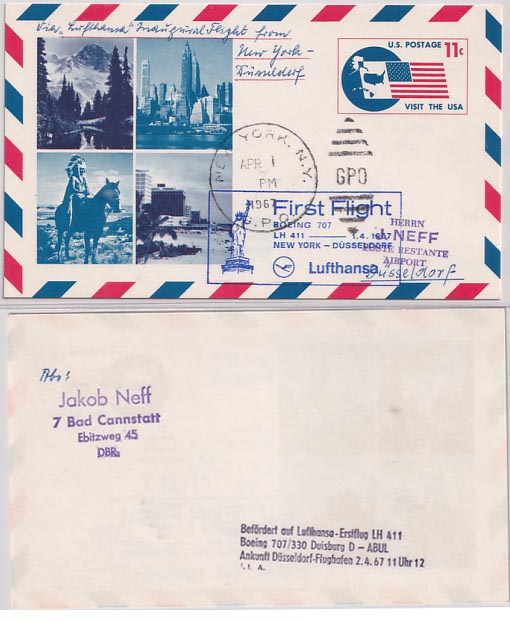 Via „Lufthansa" Inaugural Flight from
New York -
Düsseldorf
U.S. POSTAGE 11c
VISIT THE USA
NEW YORK, N.Y.
APR 1
PM
1967
G.P.O.
GPO
First Flight
BOEING 707
LH 411 — 1.4.1967
NEW YORK – DÜSSELDORF
Lufthansa
HERRN
J. NEFF
POSTE RESTANTE
AIRPORT
Düsseldorf
Abs:
Jakob Neff
7 Bad Cannstatt
Ebitzweg 45
DBR.
Befördert auf Lufthansa-Erstflug LH 411
Boeing 707/330 Duisburg D - ABUL
Ankunft Düsseldorf-Flughafen 2.4.67 11 Uhr 12
I. A.